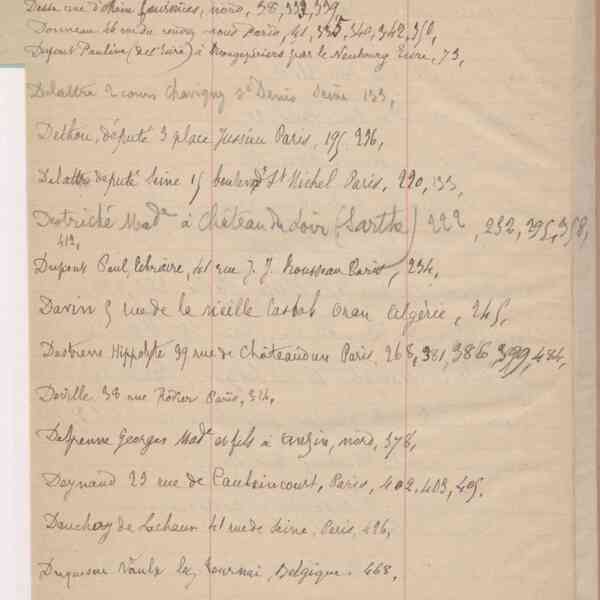 Desse rue d'Arim fourmies, nord, 38, 332, 339
Donneau 46 rue du rendez-vous Paris, 41, 335, 340, 342, 350,
Dupont Pauline (de l'Eure) à par le Neubourg Eure, 73,
Delattre 2 cours Chavigny St Denis Seine 133,
Dethou, député 3 place Jussieu Paris, 195, 236,
Delattre député Seine 15 boulevd St Michel Paris, 220, 133,
Destriché Made à Château du Loir (Sarthe) 222, 232, 395, 358,
419,
Dupont Paul, libraire, 41 rue J. J. Rousseau Paris, 234,
Davin 5 rue de la vieille Casbah Oran Algérie, 245,
Destrem Hippolyte 39 rue de Châteaudun Paris, 268, 381, 386, 399, 484,
Deville 38 rue Rodier Paris, 324,
Georges Made et fils à Anzin, nord, 378,
Deynaud 23 rue de Caulaincourt, Paris, 402, 403, 405,
de Lachaux 41 rue de Seine, Paris, 426,
Duquesne Vaulx lez Tournai, Belgique. 468,